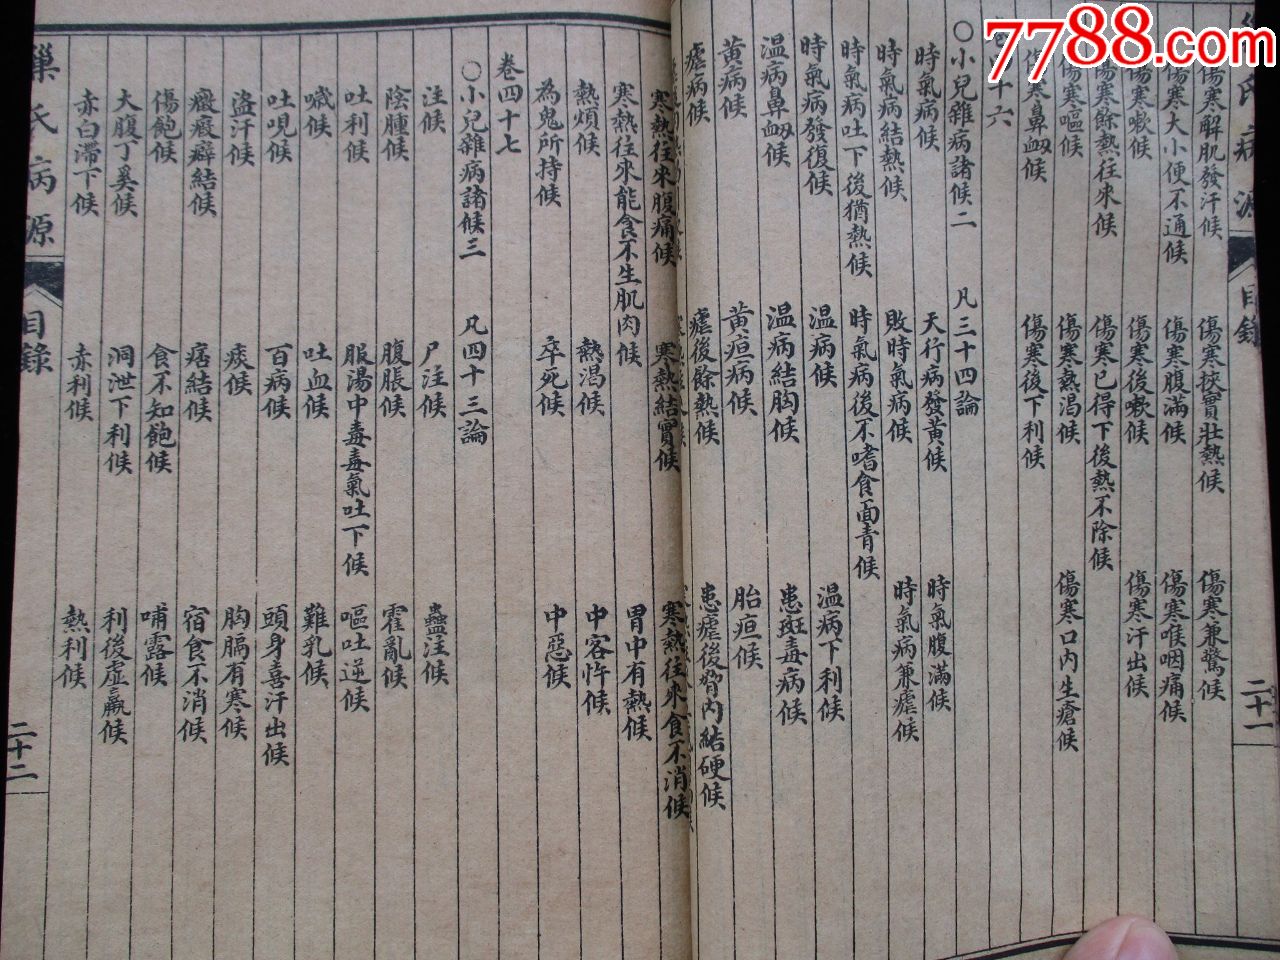 7788.com
傷寒解肌發汗候 傷寒挾實壯熱候 傷寒兼驚候
傷寒大小便不通候 傷寒腹滿候 傷寒喉咽痛候
傷寒嗽候 傷寒後嗽候 傷寒汗出候
傷寒餘熱往來候 傷寒已得下後熱不除候
傷寒嘔候 傷寒熱渴候 傷寒口內生瘡候
傷寒鼻衂候 傷寒後下利候
卷四十六
○小兒雜病諸候二 凡三十四論
時氣病候 天行病發黃候 時氣腹滿候
時氣病結熱候 敗時氣病候 時氣病兼瘧候
時氣病吐下後猶熱候 時氣病後不嗜食面青候
時氣病發復候 温病候 温病下利候
温病鼻衂候 温病結胸候 患斑毒病候
黃病候 黃疸病候 胎疸候
瘧病候 瘧後餘熱候 患瘧後脅內結硬候
寒熱往來腹痛候 寒熱結實候 寒熱往來食不消候
寒熱往來能食不生肌肉候 胃中有熱候
熱煩候 熱渴候 中客忤候
為鬼所持候 卒死候 中惡候
卷四十七
○小兒雜病諸候三 凡四十三論
注候 尸注候 蠱注候
陰腫候 腹脹候 霍亂候
吐利候 服湯中毒毒氣吐下候 嘔吐逆候
噦候 吐血候 難乳候
吐哯候 百病候 頭身喜汗出候
盜汗候 痰候 胸膈有寒候
癥瘕癖結候 痞結候 宿食不消候
傷飽候 食不知飽候 哺露候
大腹丁奚候 洞泄下利候 利後虛羸候
赤白滯下候 赤利候 熱利候
巢氏病源 目錄 二十二
氏病源 目錄 二十一